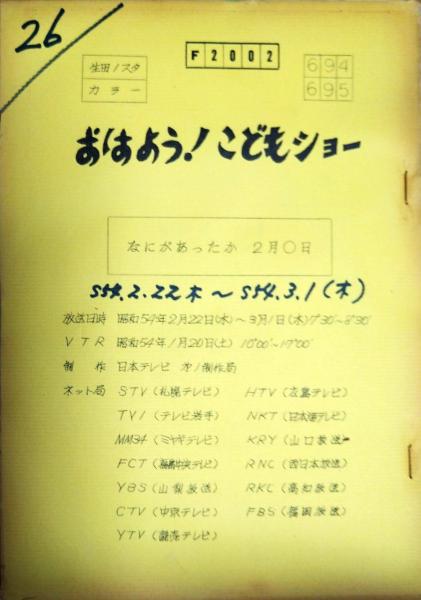 26
F2002
生田1スタ
カラー
694
695
おはよう!こどもショー
なにがあったか 2月〇日
S54.2.22木〜S54.3.1(木)
放送日時 昭和54年2月22日(木)〜3月1日(木)7'30"〜8'30"
VTR 昭和54年1月20日(土)10'00"〜19'00"
制作 日本テレビ 第1制作局
ネット局 STV(札幌テレビ) HTV(広島テレビ)
TVI(テレビ岩手) NKT(日本海テレビ)
MM34(ミヤギテレビ) KRY(山口放送)
FCT(福島中央テレビ) RNC(西日本放送)
YBS(山梨放送) RKC(高知放送)
CTV(中京テレビ) FBS(福岡放送)
YTV(讀売テレビ)